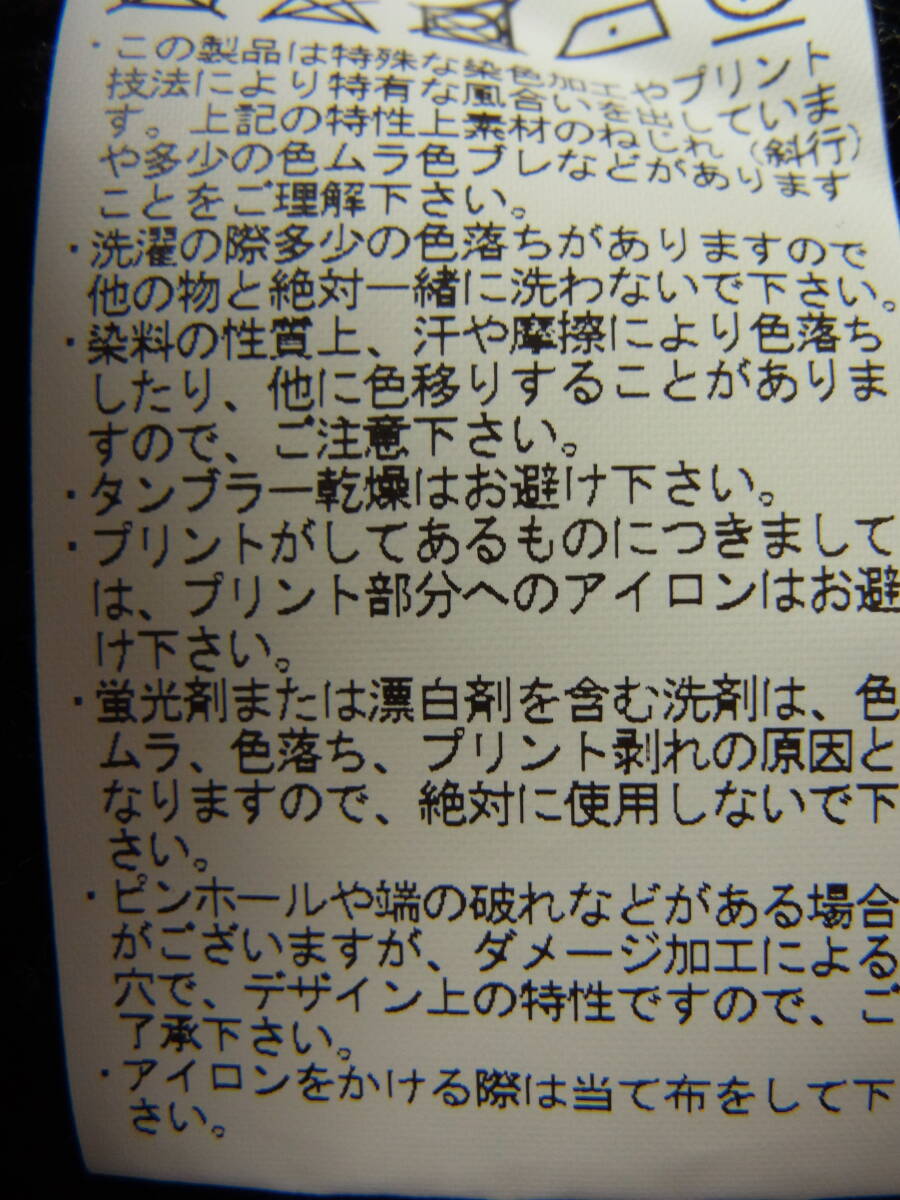 ・この製品は特殊な染色加工やプリント
技法により特有な風合いを出していま
す。上記の特性上素材のねじれ（斜行）
や多少の色ムラ色ブレなどがあります
ことをご理解下さい。
・洗濯の際多少の色落ちがありますので
他の物と絶対一緒に洗わないで下さい。
・染料の性質上、汗や摩擦により色落ち
したり、他に色移りすることがありま
すので、ご注意下さい。
・タンブラー乾燥はお避け下さい。
・プリントがしてあるものにつきまして
は、プリント部分へのアイロンはお避
け下さい。
・蛍光剤または漂白剤を含む洗剤は、色
ムラ、色落ち、プリント剥れの原因と
なりますので、絶対に使用しないで下
さい。
・ピンホールや端の破れなどがある場合
がございますが、ダメージ加工による
穴で、デザイン上の特性ですので、ご
了承下さい。
・アイロンをかける際は当て布をして下
さい。